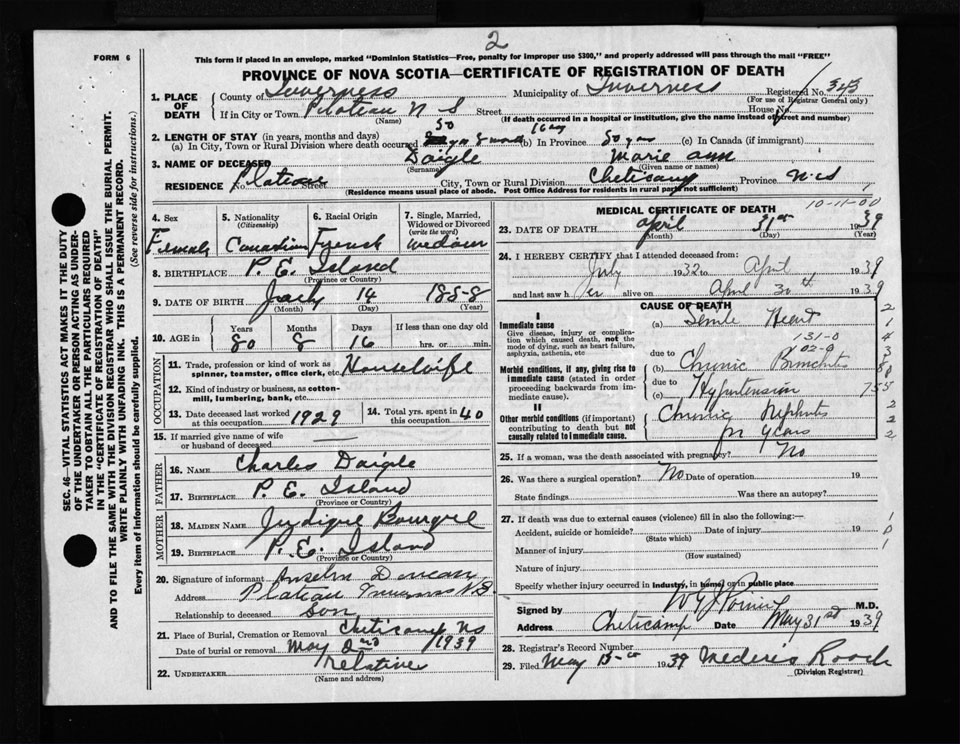 2
FORM 6
This form if placed in an envelope, marked "Dominion Statistics—Free, penalty for improper use $300," and properly addressed will pass through the mail "FREE"
PROVINCE OF NOVA SCOTIA—CERTIFICATE OF REGISTRATION OF DEATH
1. PLACE OF DEATH
County of Inverness Municipality of Inverness Registered No. 343
(For use of Registrar General only)
If in City or Town Plateau N S Street House No.
(Name) (If death occurred in a hospital or institution, give the name instead of street and number)
2. LENGTH OF STAY (in years, months and days)
(a) In City, Town or Rural Division where death occurred 50 (b) In Province 50 yrs (c) In Canada (if immigrant)
3. NAME OF DECEASED Daigle Marie ann
(Surname) (Given name or names)
RESIDENCE No. Plateau Street City, Town or Rural Division Cheticamp Province N.S
(Residence means usual place of abode. Post Office Address for residents in rural parts not sufficient)
4. Sex Female
5. Nationality (Citizenship) Canadian
6. Racial Origin French
7. Single, Married, Widowed or Divorced (write the word) widow
8. BIRTHPLACE P. E. Island
(Province or Country)
9. DATE OF BIRTH July 14 1858
(Month) (Day) (Year)
10. AGE in Years Months Days If less than one day old
80 8 16 hrs. or min.
OCCUPATION
11. Trade, profession or kind of work as spinner, teamster, office clerk, etc. Housewife
12. Kind of industry or business, as cotton-mill, lumbering, bank, etc.
13. Date deceased last worked at this occupation 1929
14. Total yrs. spent in this occupation 40
15. If married give name of wife or husband of deceased
FATHER
16. NAME Charles Daigle
17. BIRTHPLACE P. E. Island
(Province or Country)
MOTHER
18. MAIDEN NAME
19. BIRTHPLACE P. E. Island
(Province or Country)
20. Signature of informant Anselm Duncan
Address Plateau Inverness N.S.
Relationship to deceased Son
21. Place of Burial, Cremation or Removal Cheticamp NS
Date of burial or removal May 2nd 1939
22. UNDERTAKER relative
(Name and address)
MEDICAL CERTIFICATE OF DEATH
10-11-00
23. DATE OF DEATH April 31st 1939
(Month) (Day) (Year)
24. I HEREBY CERTIFY that I attended deceased from:
July 1932 to April 1939
and last saw her alive on April 30th 1939
CAUSE OF DEATH
I
Immediate cause
Give disease, injury or complication which caused death, not the mode of dying, such as heart failure, asphyxia, asthenia, etc
(a) Senile Heart
131-0
102-9
Morbid conditions, if any, giving rise to immediate cause (stated in order proceeding backwards from immediate cause).
due to
(b) Chronic Bronchitis
due to
(c) Hypertension
II
Other morbid conditions (if important) contributing to death but not causally related to immediate cause.
Chronic Nephritis
for years
25. If a woman, was the death associated with pregnancy? No
26. Was there a surgical operation? No Date of operation 19
State findings Was there an autopsy?
27. If death was due to external causes (violence) fill in also the following:—
Accident, suicide or homicide? Date of injury 19
(State which)
Manner of injury
(How sustained)
Nature of injury
Specify whether injury occurred in industry, in home, or in public place
Signed by M.D.
Address Cheticamp Date May 31st 1939
28. Registrar's Record Number
29. Filed May 15 1939 Mederic Roach
(Division Registrar)
SEC. 46—VITAL STATISTICS ACT MAKES IT THE DUTY OF THE UNDERTAKER OR PERSON ACTING AS UNDERTAKER TO OBTAIN ALL THE PARTICULARS REQUIRED IN THE "CERTIFICATE OF REGISTRATION OF DEATH"
AND TO FILE THE SAME WITH THE DIVISION REGISTRAR WHO SHALL ISSUE THE BURIAL PERMIT.
WRITE PLAINLY WITH UNFADING INK. THIS IS A PERMANENT RECORD.
Every item of information should be carefully supplied. (See reverse side for instructions.)